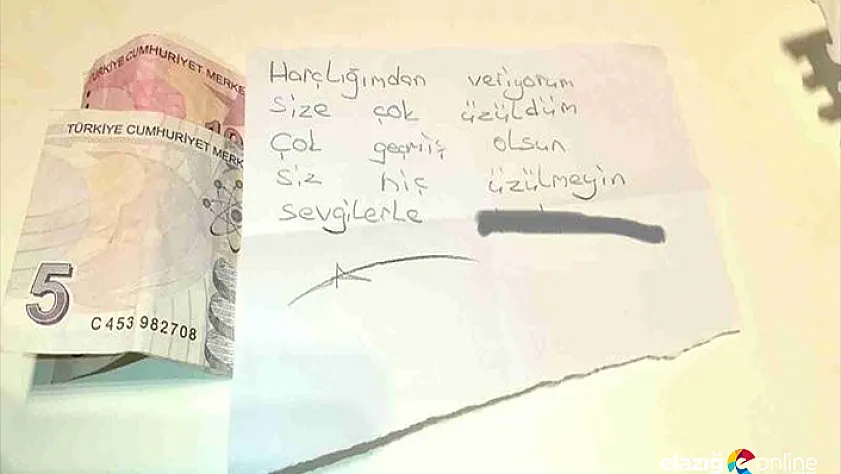 TÜRKİYE CUMHURİYET MERKE
TÜRKİYE CUMHURİYET MERK
5
C453 982708
Harçlığımdan veriyorum
Size çok üzüldüm
Çok geçmiş olsun
Siz hiç üzülmeyin
Sevgilerle
elazığ online